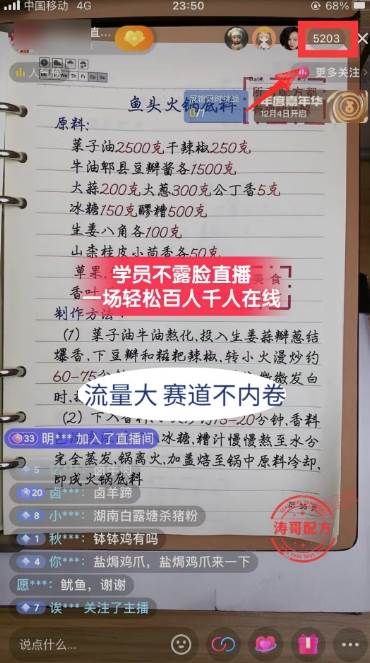 中国移动 4G
23:50
直…
5203
人气榜
更多关注
年度嘉年华
12月4日开启
鱼头火锅底料
原料:
菜子油2500克干辣椒250克
牛油郫县豆瓣酱各1500克
大蒜200克大葱300克公丁香5克
冰糖150克醪糟500克
生姜八角各100克
山柰桂皮小茴香各50克
草果
香叶
美食
学员不露脸直播
一场轻松百人千人在线
制作方法:
(1) 菜子油牛油熬化,投入生姜蒜瓣葱结
爆香,下豆瓣和糍粑辣椒,转小火漫炒约
60-75分
微微发白
时
流量大 赛道不内卷
(2) 下入香料
15-20分钟,香料
33 明*** 加入了直播间
冰糖,糟汁慢慢熬至水分
完全蒸发,锅离火,加盖焐至锅中原料冷却,
即成火锅底料
20 卤***: 卤羊蹄
8 小***: 湖南白露塘杀猪粉
1 秋***: 钵钵鸡有吗
4 你***: 盐焗鸡爪,盐焗鸡爪来一下
愿***: 鱿鱼,谢谢
7 诶*** 关注了主播
涛哥配方
说点什么...